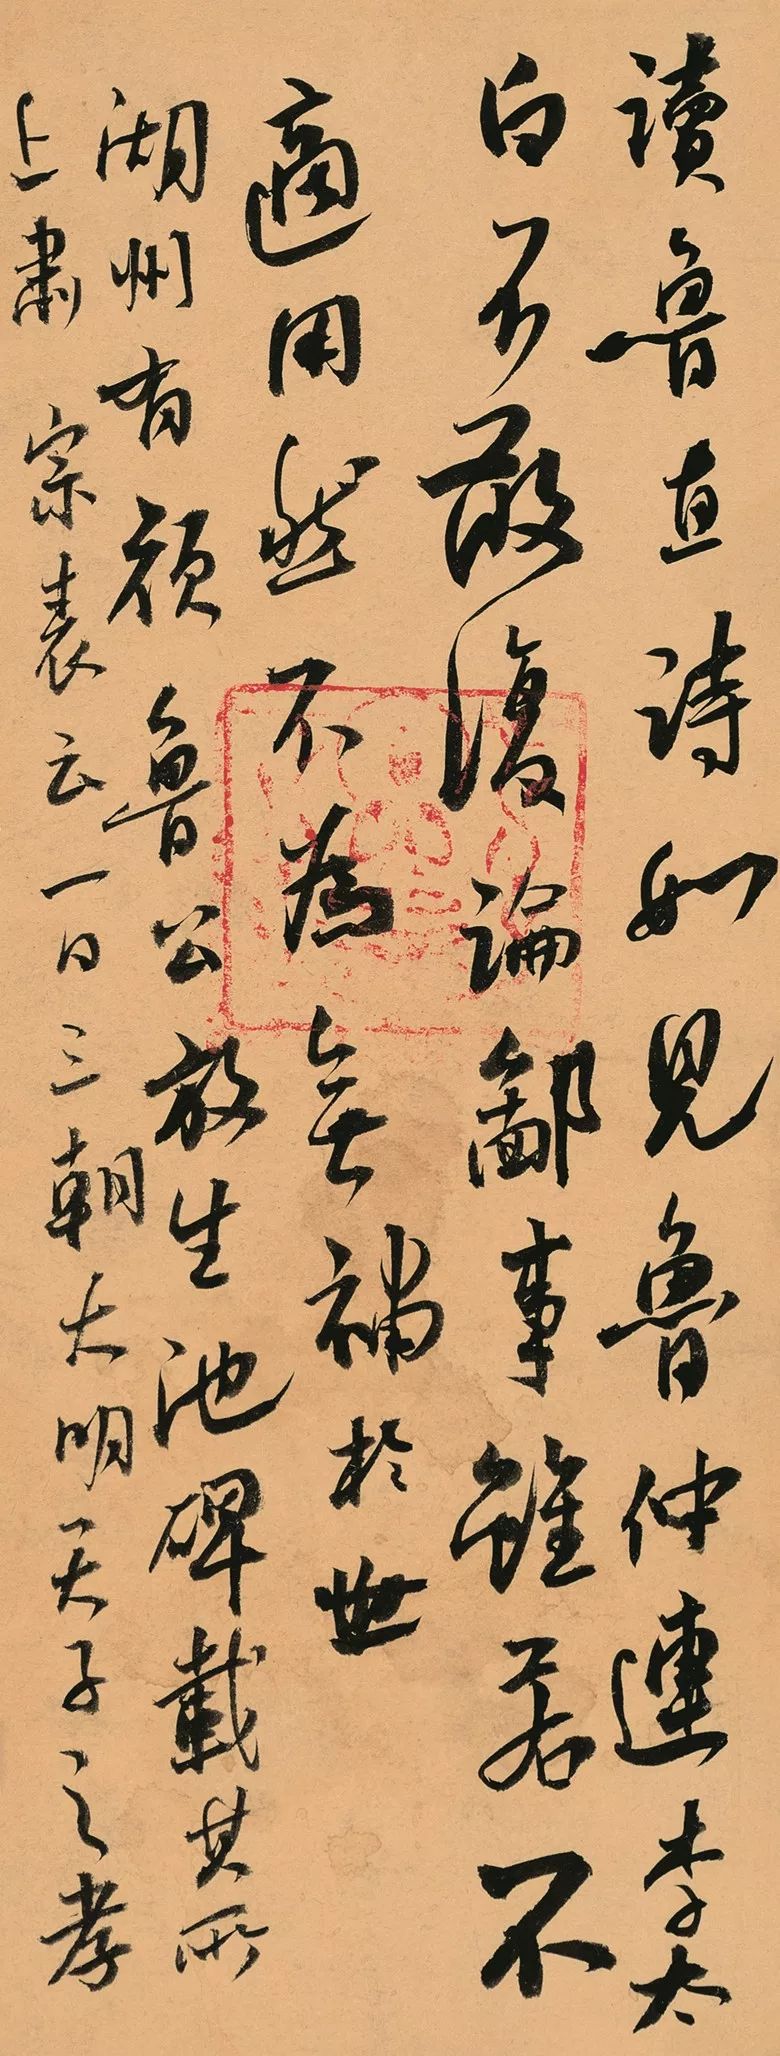 讀魯直詩如見魯仲連李太
白不敢復論鄙事雖若不
適用然不為無補於世
湖州有顔魯公放生池碑載其所
上肅宗表云一日三朝大明天子之孝